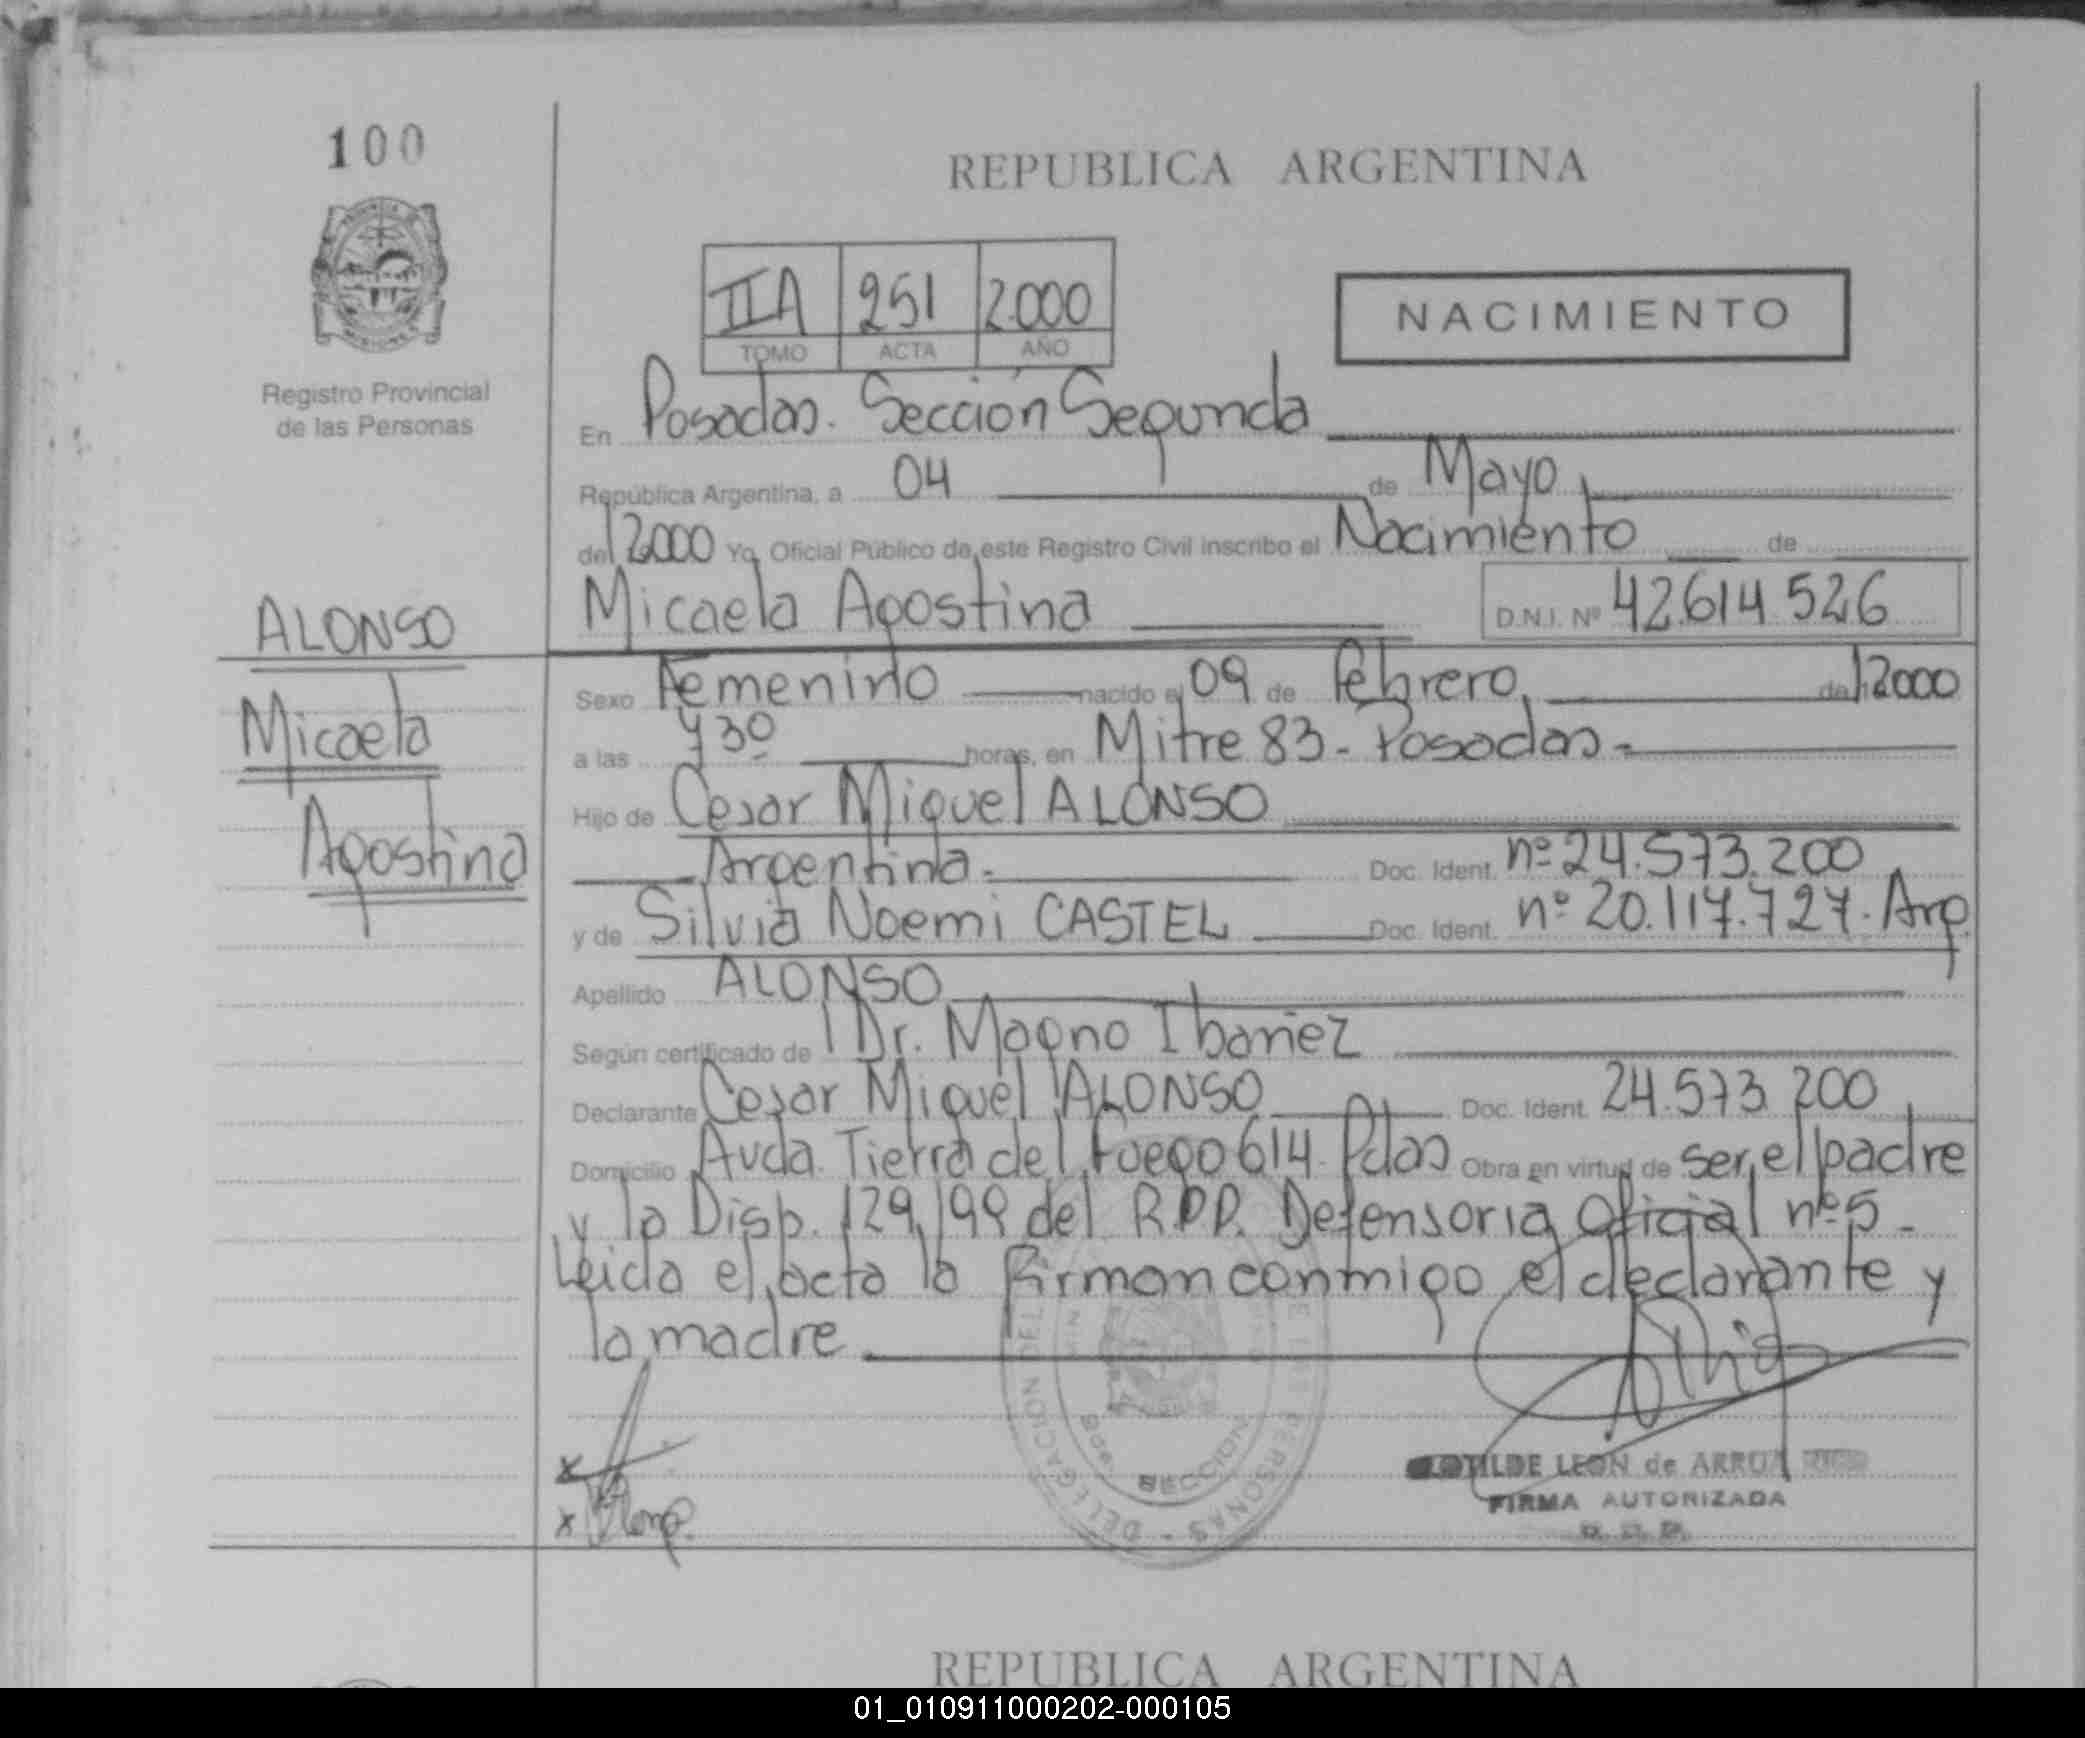 100
REPUBLICA ARGENTINA
IIA 251 2.000
TOMO ACTA AÑO
NACIMIENTO
Registro Provincial
de las Personas
En Posadas. Sección Segunda
República Argentina, a 04 de Mayo
del 2.000 Yo, Oficial Público de este Registro Civil inscribo el Nacimiento de
Micaela Agostina D.N.I. Nº 42.614.526
ALONSO
Micaela
Agostina
Sexo Femenino nacido el 09 de Febrero, de 2000
a las 730 horas, en Mitre 83 - Posadas -
Hijo de Cesar Miguel ALONSO
Argentina - Doc. Ident. nº 24.573.200
y de Silvia Noemi CASTEL Doc. Ident. nº 20.117.727. Arg.
Apellido ALONSO
Según certificado de Dr. Magno Ibañez
Declarante Cesar Miguel ALONSO Doc. Ident. 24.573.200
Domicilio Avda. Tierra del Fuego 614. Pdas Obra en virtud de ser el padre
y la Disp. 129/99 del R.P.P. Defensoria Oficial nº 5 -
Leida el acta la firman conmigo el declarante y
la madre
DELEGACION DE LAS PERSONAS
SECCION
LEON de ARRUA
FIRMA AUTORIZADA
REPUBLICA ARGENTINA
01_010911000202-000105